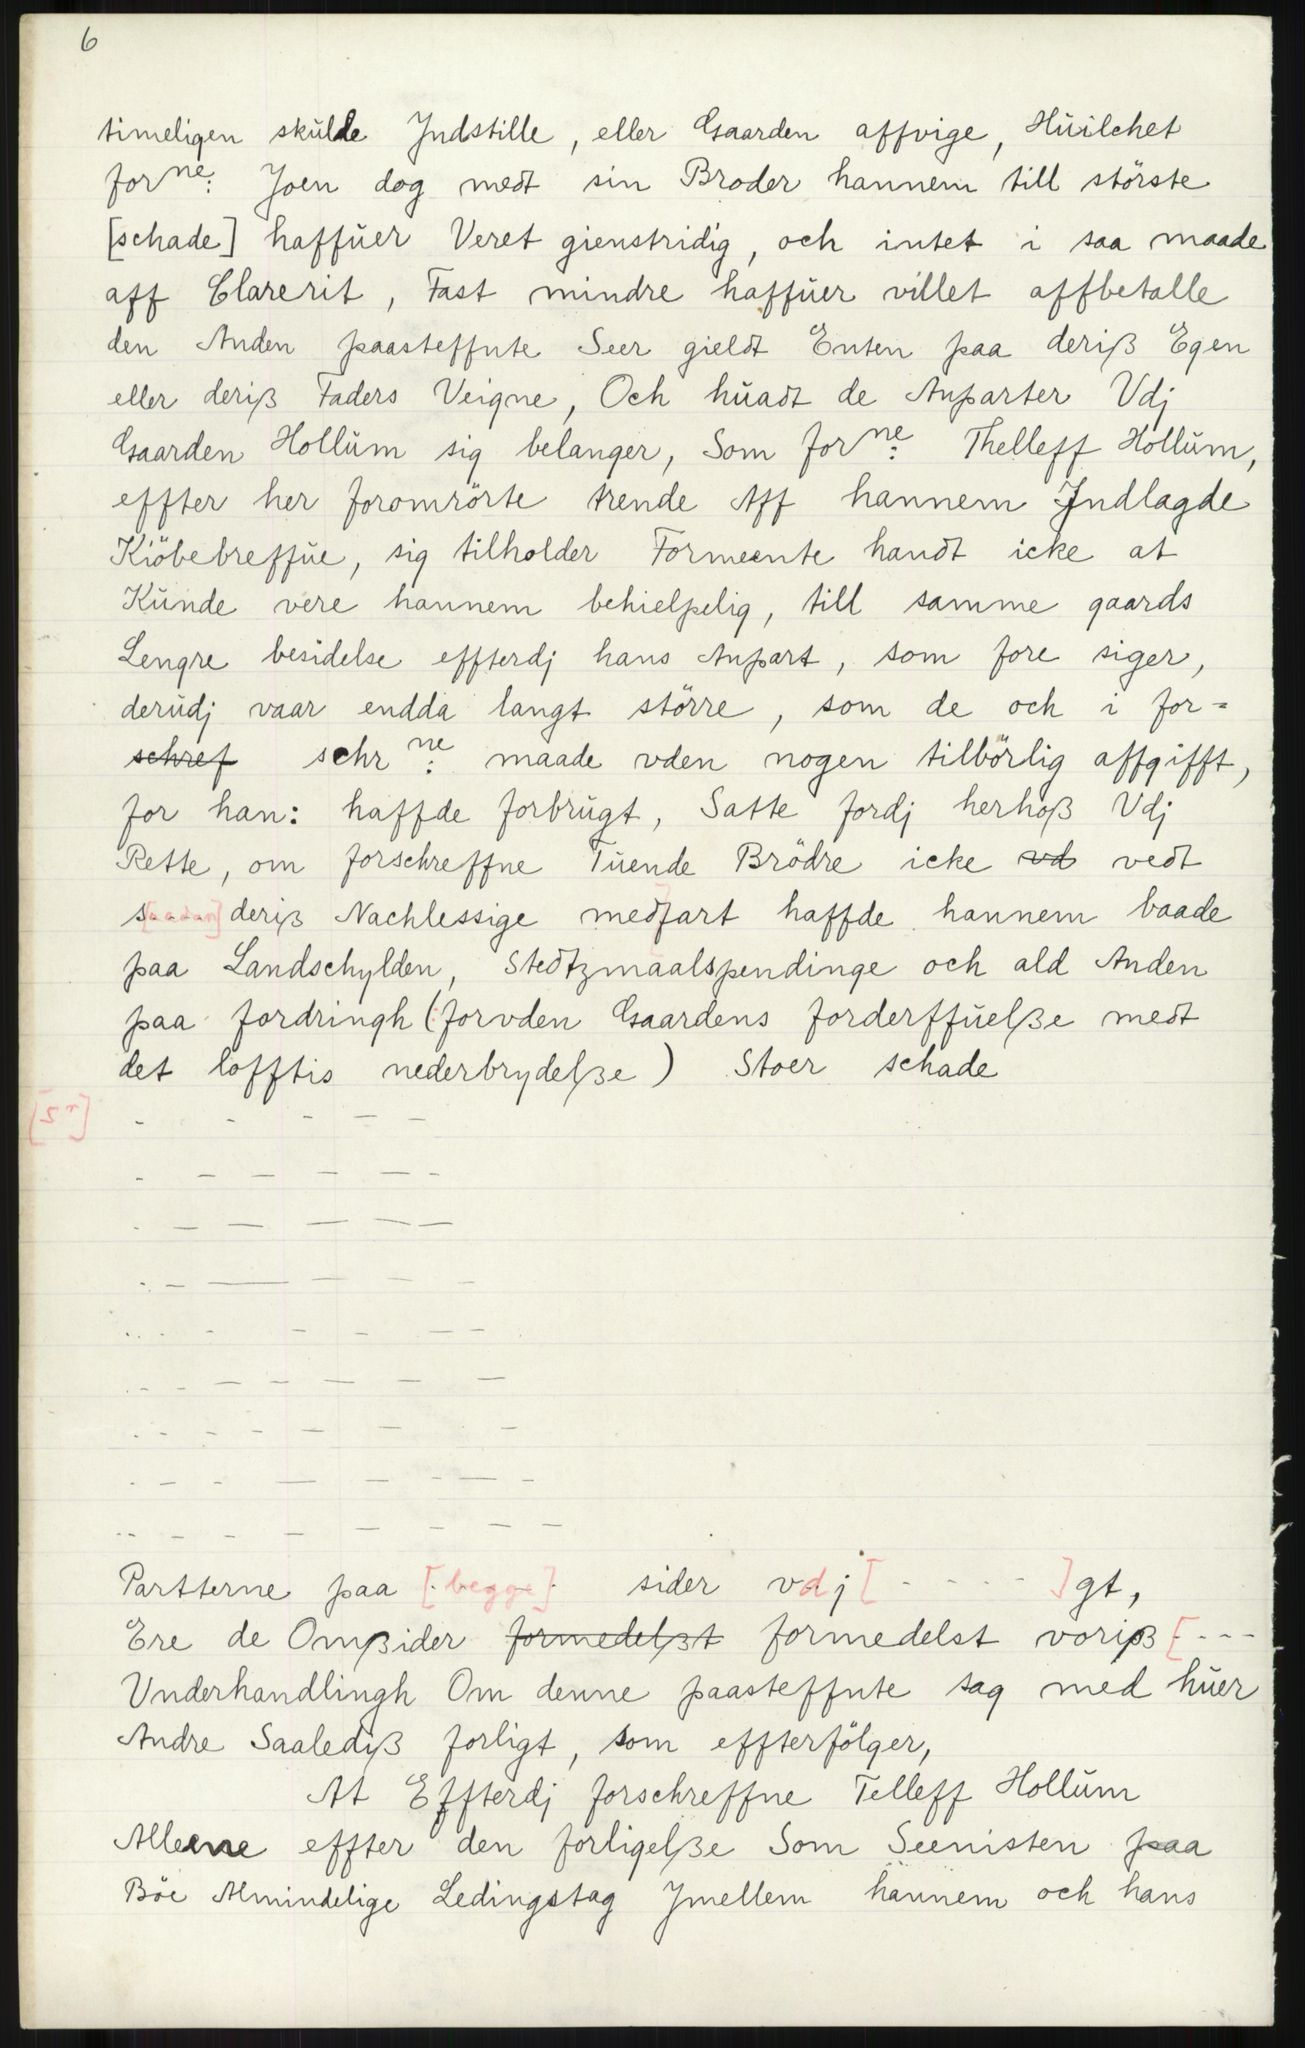 6
timeligen skulde Jndstille, eller Gaarden affvige, Huilchet
forne: Joen dog medt sin Broder hannem till störste
[schade] haffuer Veret gienstridig, och intet i saa maade
aff Clarerit, Fast mindre haffuer villet affbetalle
den Anden paasteffnte Seer gieldt Enten paa deriß Egen
eller deriß Faders Veigne, Och huadt de Anparter Vdj
Gaarden Hollum sig belanger, Som forne: Thelleff Hollum,
effter her foromrörte trende Aff hannem Jndlagde
Kiöbebreffue, sig tilholder Formeente handt icke at
Kunde vere hannem behielpelig, till samme gaards
Lengre besidelse effterdj hans Anpart, som fore siger,
derudj vaar endda langt större, som de och i for=
schref schrne: maade vden nogen tilbörlig affgifft,
for han: haffde forbrugt, Satte fordj herhoß Vdj
Rette, om forschreffne Tuende Brödre icke vd vedt
s[aadan] deriß Nachlessige medfart haffde hannem baade
paa Landschylden, Stedtzmaalspendinge och ald Anden
paa fordringh (forvden Gaardens forderffuelße medt
det lofftis nederbrydelße) Stoer schade
Partterne paa [begge] sider vdj [- - - - -]gt,
Ere de Omßider formedelßt formedelst voriß [- - -
Vnderhandlingh Om denne paasteffnte sag med huer
Andre Saalediß forligt, som effterfölger,
At Effterdj forschreffne Telleff Hollum
Alleene effter den forligelße Som Seenisten paa
Böe Almindelige Ledingstag Jmellem hannem och hans